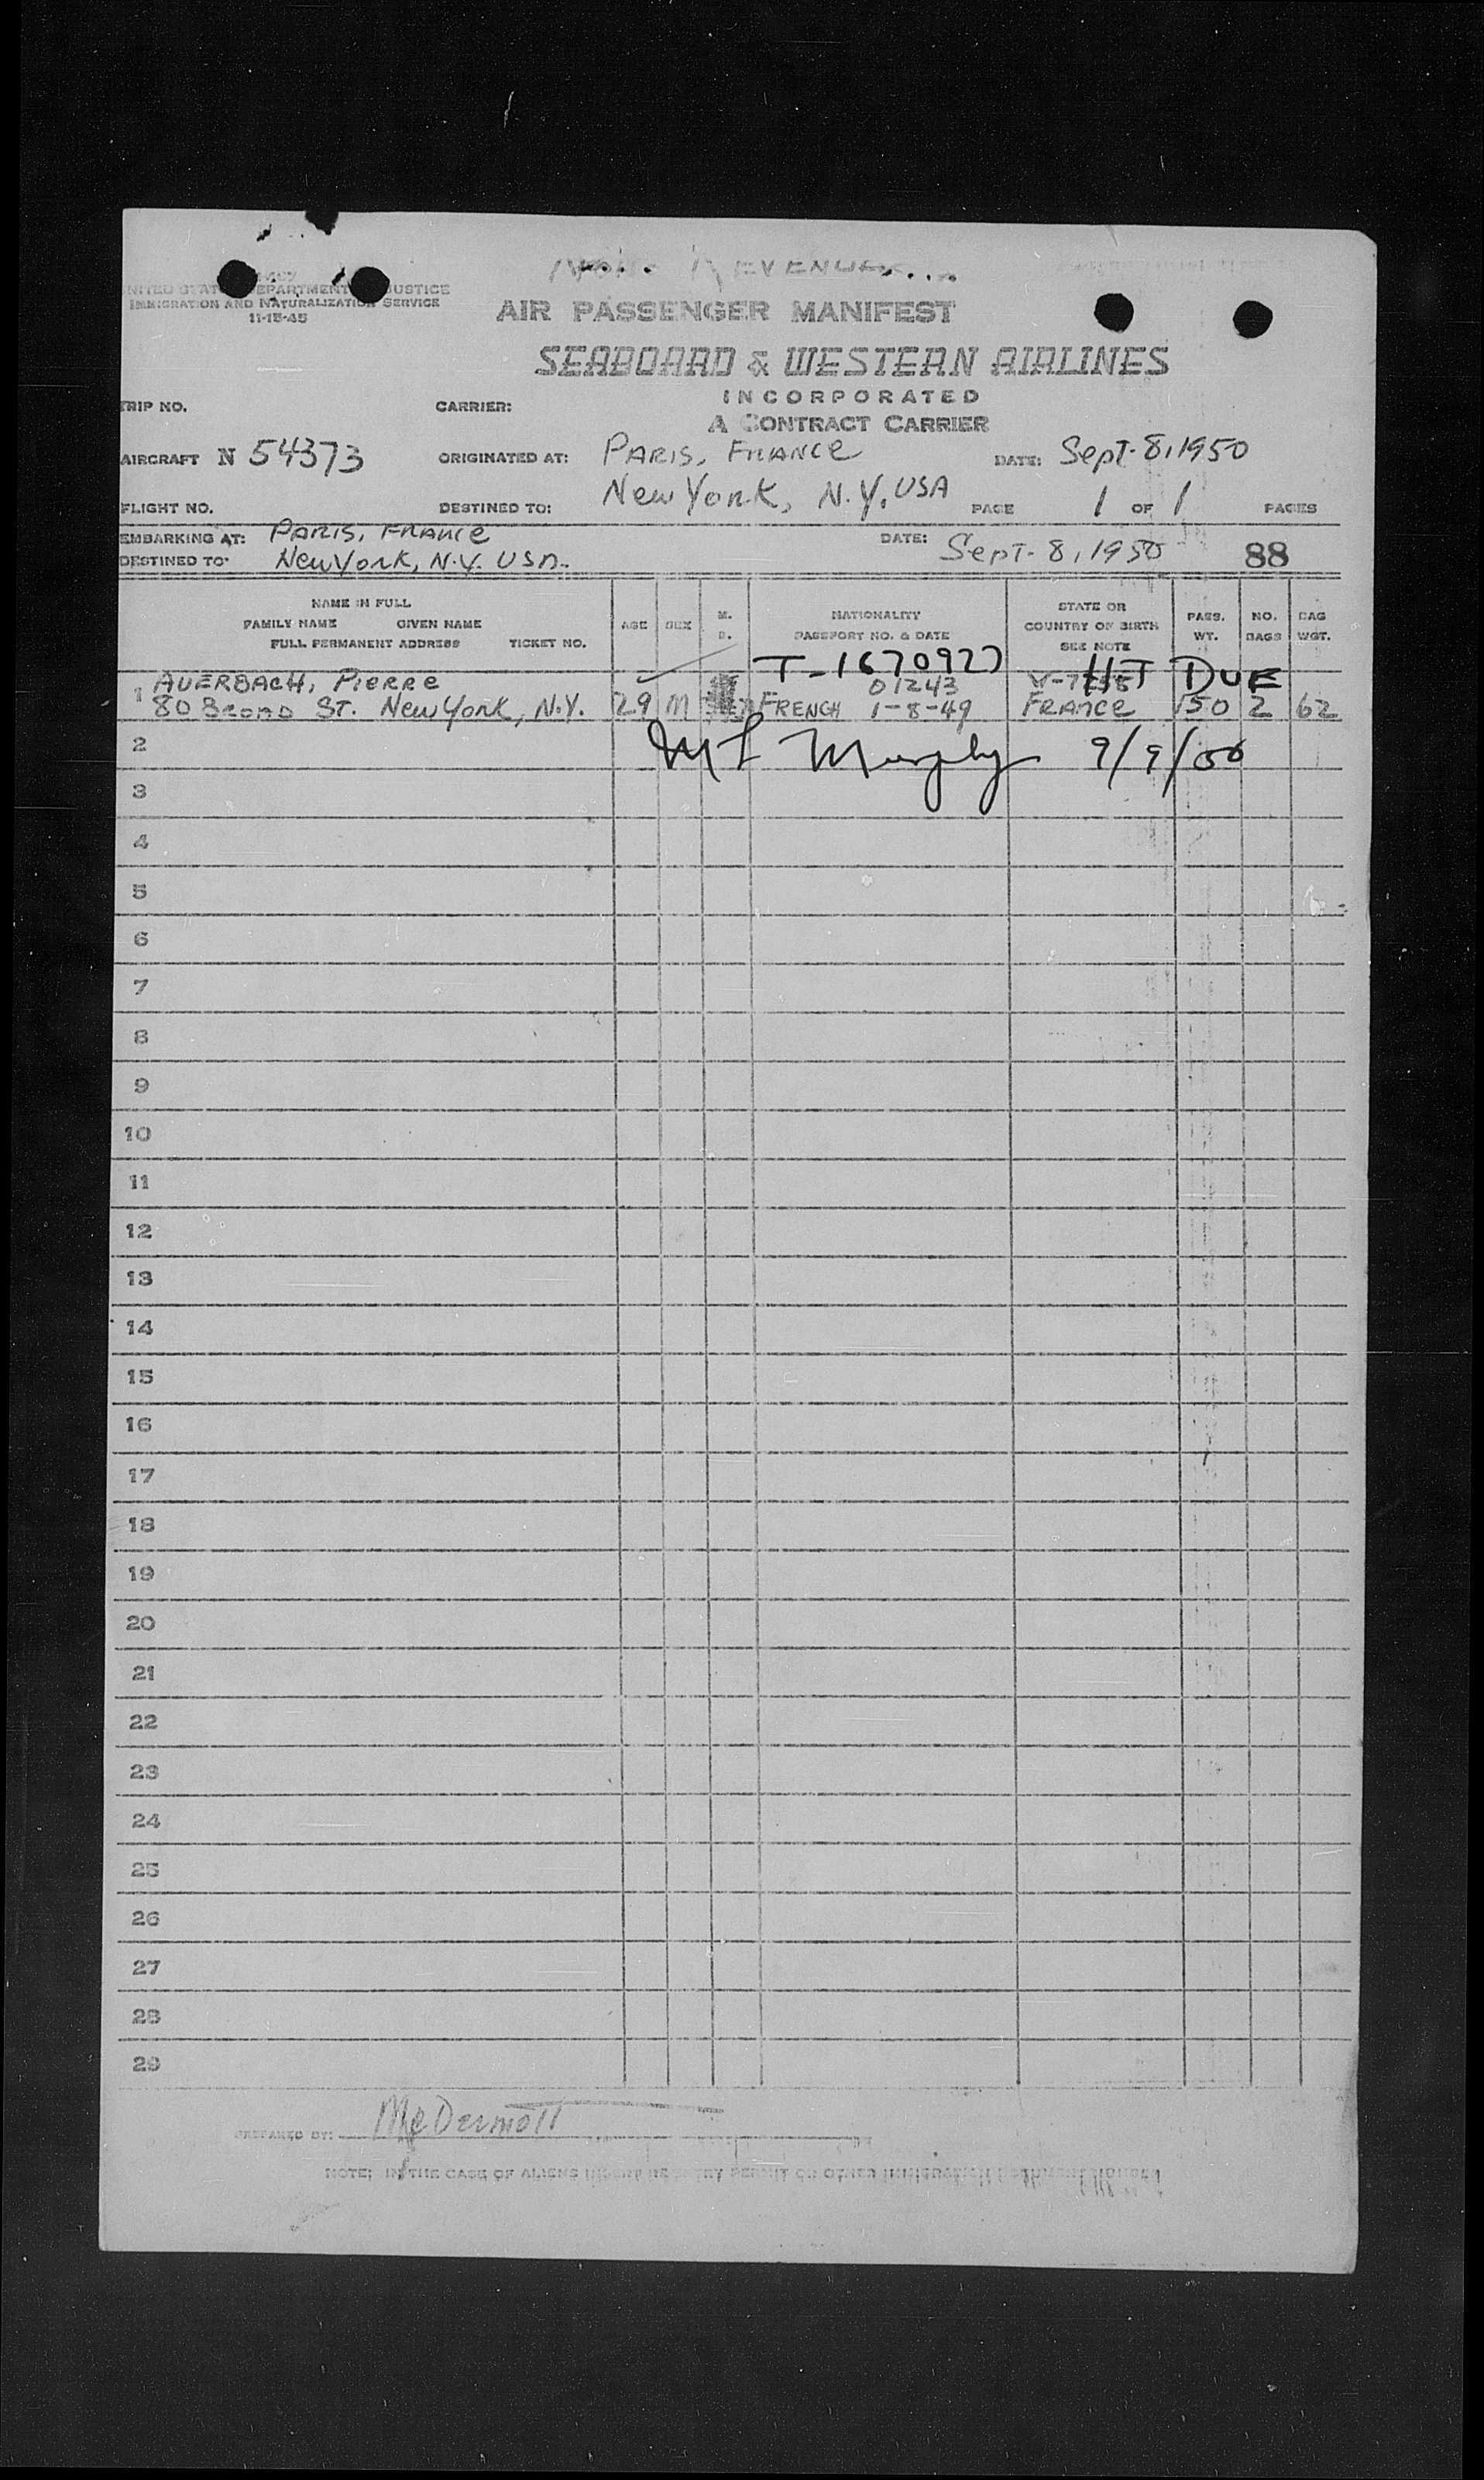 REVENUE
UNITED STATES DEPARTMENT JUSTICE
IMMIGRATION AND NATURALIZATION SERVICE
11-15-45
AIR PASSENGER MANIFEST
SEABOARD & WESTERN AIRLINES
INCORPORATED
A CONTRACT CARRIER
TRIP NO. CARRIER:
AIRCRAFT N 54373 ORIGINATED AT: PARIS, FRANCE DATE: Sept-8,1950
FLIGHT NO. DESTINED TO: New York, N.Y. USA PAGE 1 OF 1 PAGES
EMBARKING AT: PARIS, FRANCE DATE: Sept-8,1950 88
DESTINED TO: New York, N.Y. USA.
NAME IN FULL
FAMILY NAME GIVEN NAME
FULL PERMANENT ADDRESS TICKET NO.
AGE
SEX
M.
S.
NATIONALITY
PASSPORT NO. & DATE
STATE OR
COUNTRY OF BIRTH
SEE NOTE
PASS.
WT.
NO.
BAGS
BAG
WGT.
T-1670927 HT DUE
1 AUERBACH, Pierre 01243
80 BROAD ST. New York, N.Y. 29 M FRENCH 1-8-49 FRANCE 150 2 62
2 M L Murphy 9/9/50
3
4
5
6
7
8
9
10
11
12
13
14
15
16
17
18
19
20
21
22
23
24
25
26
27
28
29
PREPARED BY: McDermott
NOTE: IN THE CASE OF